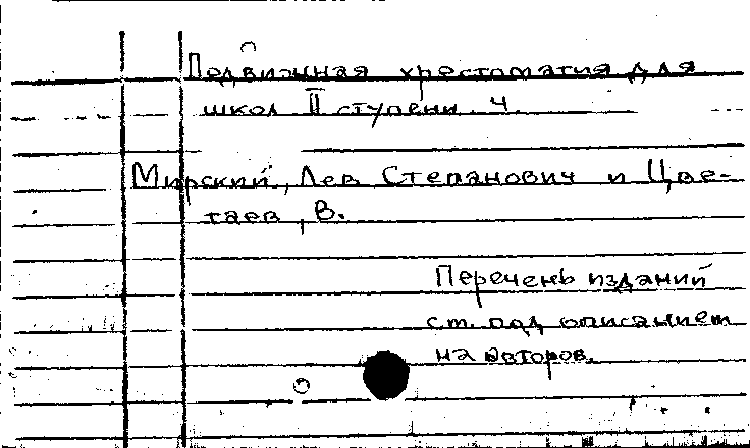 Подвижная хрестоматия для
школ II ступени. Ч.
Мирский, Лев Степанович и Цве-
таев, В.
Перечень изданий
см. под описанием
на авторов.